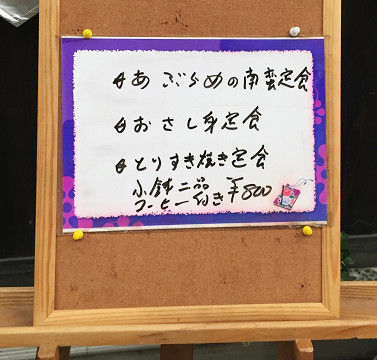 あぶらめの南蛮定食
おさし身定食
とりすき焼き定食
小鉢二品
コーヒー付き ¥800